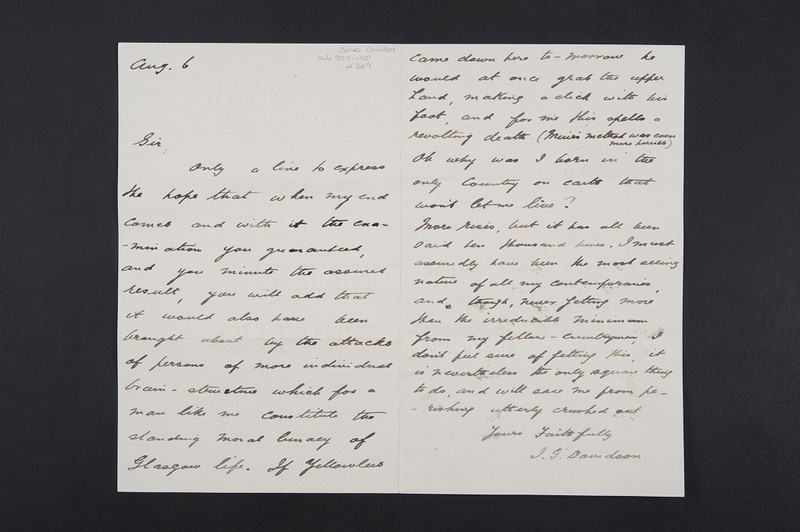 Aug. 6
James Davidson
Male 1897-1901
p 369
Sir,
Only a line to express
the hope that when my end
comes and with it the exa-
-mination you guaranteed,
and you minute the assured
result, you will add that
it would also have been
brought about by the attacks
of persons of more individual
brain-structure which for a
man like me constitute the
standing moral lunacy of
Glasgow life. If Yellowlees
came down here to-morrow he
would at once grab the upper
hand, making a click with his
foot, and for me this spells a
revolting death (Muir's method was even
more horrible)
Oh why was I born in the
only Country on earth that
won't let me live?
More rises, but it has all been
said ten thousand times. I must
assuredly have been the most
nature of all my contemporaries,
and, though, never getting more
than the irreducible minimum
from my fellow-countrymen, I
don't feel sure of getting this, it
is nevertheless the only square thing
to do, and will save me from pe-
-rishing utterly crushed out
Yours Faithfully
J. G. Davidson